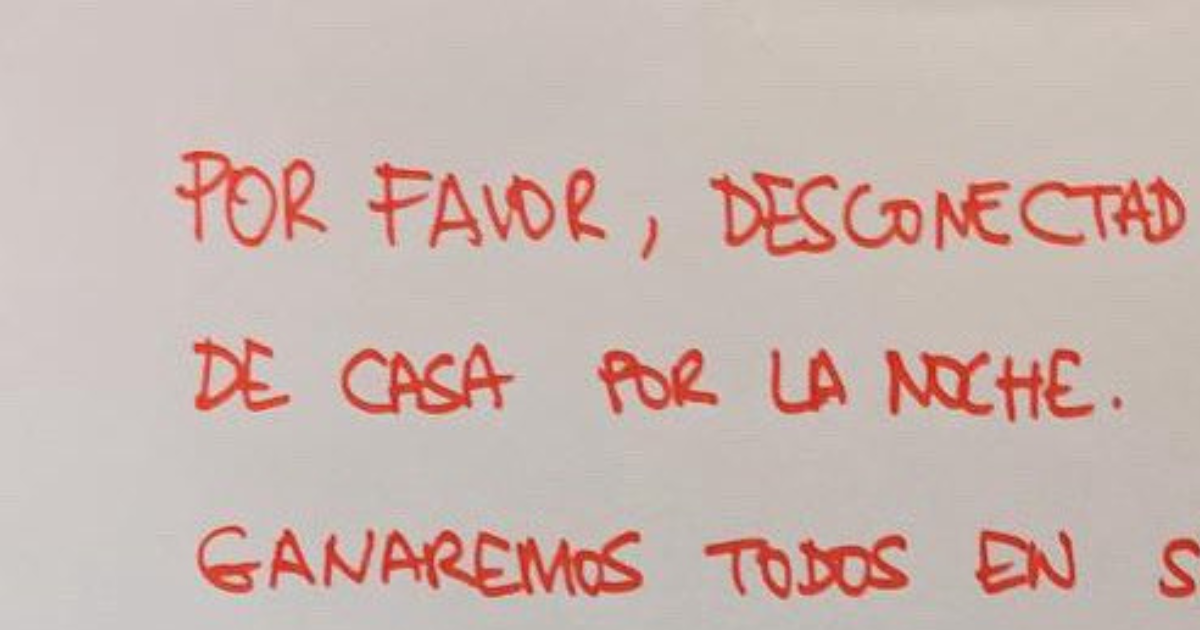 POR FAVOR, DESCONECTAD
DE CASA POR LA NOCHE.
GANAREMOS TODOS EN S